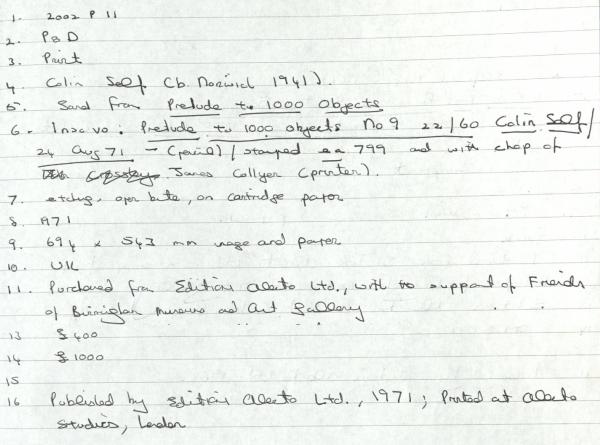 1. 2002 P 11
2. P&D
3. Print
4. Colin Self (b. Norwich 1941).
5. Sand from Prelude to 1000 Objects
6. Inscvo: Prelude to 1000 objects No 9 22/60 Colin Self/
24 Aug 71 - (pencil) / stamped 799 and with chop of
James Collyer (printer).
7. etching, open bite, on cartridge paper
8. 1971
9. 694 x 543 mm image and paper
10. UK
11. Purchased from Editions Alecto Ltd., with the support of Friends
of Birmingham Museums and Art Gallery
13 £400
14 £1000
15
16 Published by Editions Alecto Ltd., 1971; Printed at Alecto
Studios, London